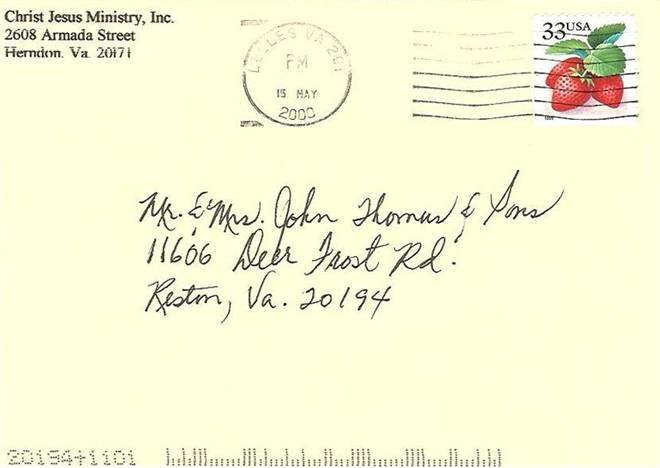 Christ Jesus Ministry, Inc.
2608 Armada Street
Herndon, Va. 20171
DULLES VA 201
PM
15 MAY
2000
33USA
Mr. & Mrs. John Thomas & Sons
11606 Deer Frost Rd.
Reston, Va. 20194
20194+1101